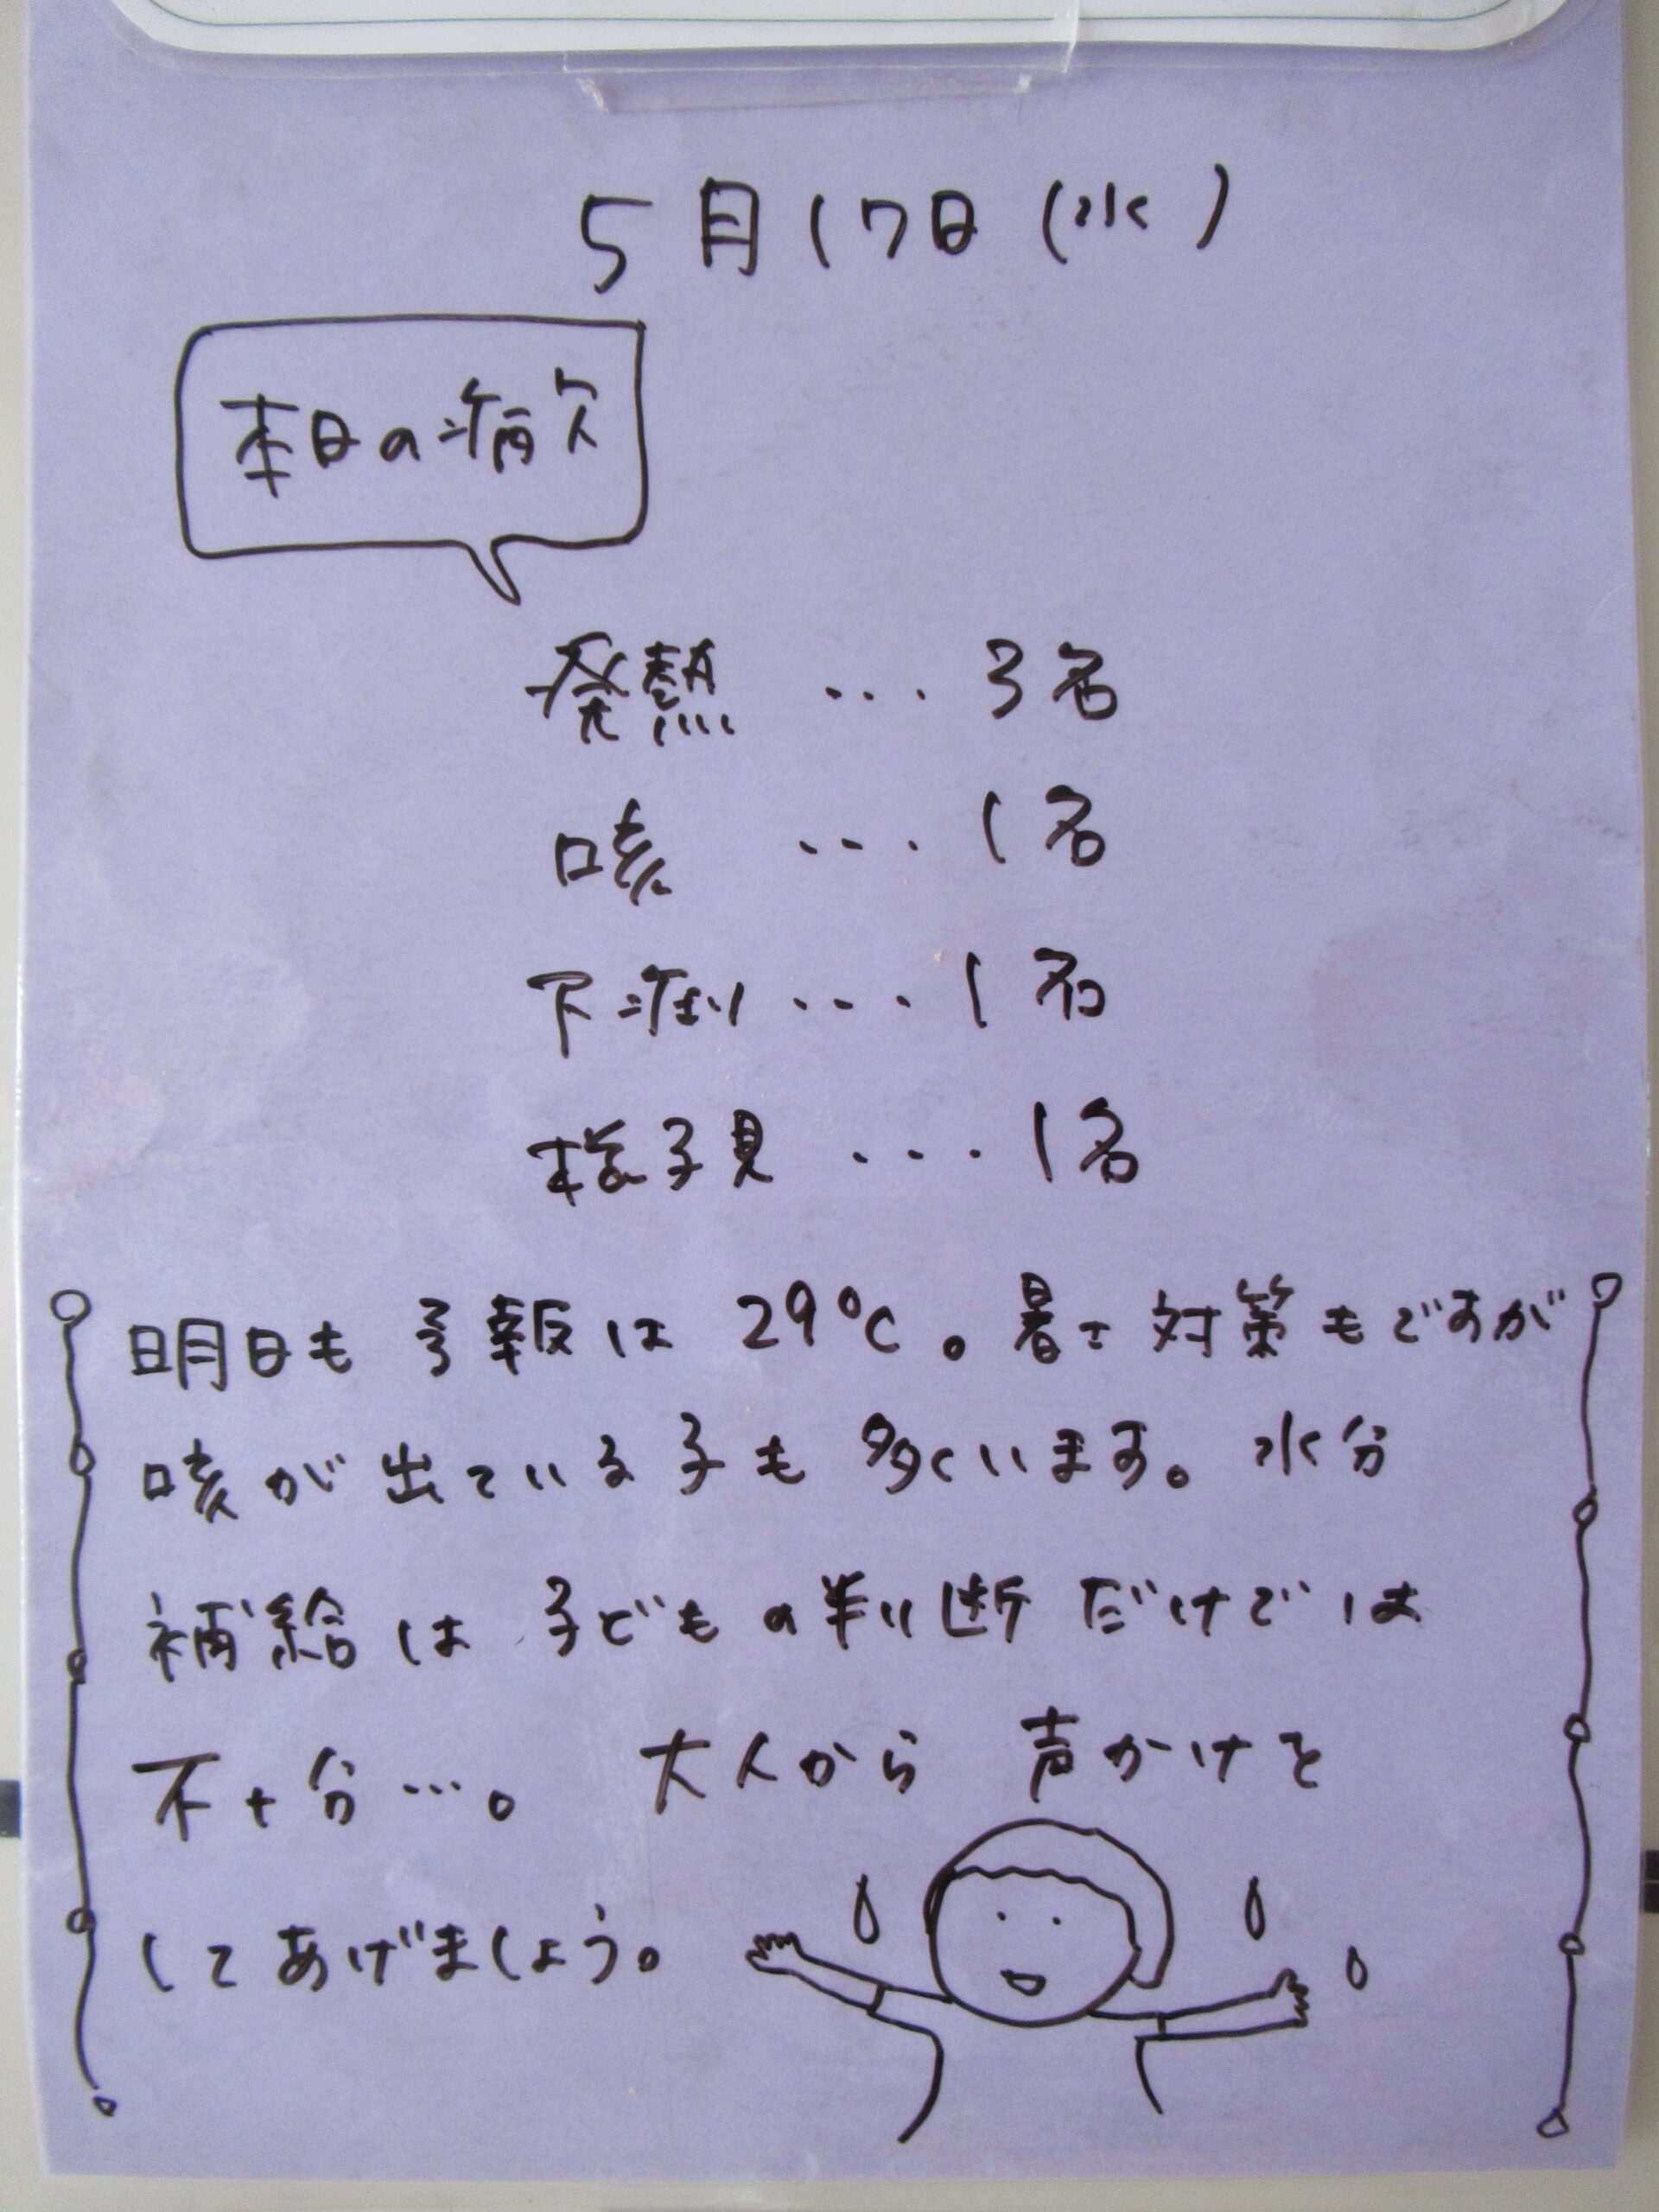 5月17日(水)
本日の病欠
発熱 ... 3名
咳 ... 1名
下痢 ... 1名
様子見 ... 1名
明日も予報は 29℃。暑さ対策もですが
咳が出ている子も多くいます。水分
補給は子どもの判断だけでは
不十分...。 大人から 声かけを
してあげましょう。